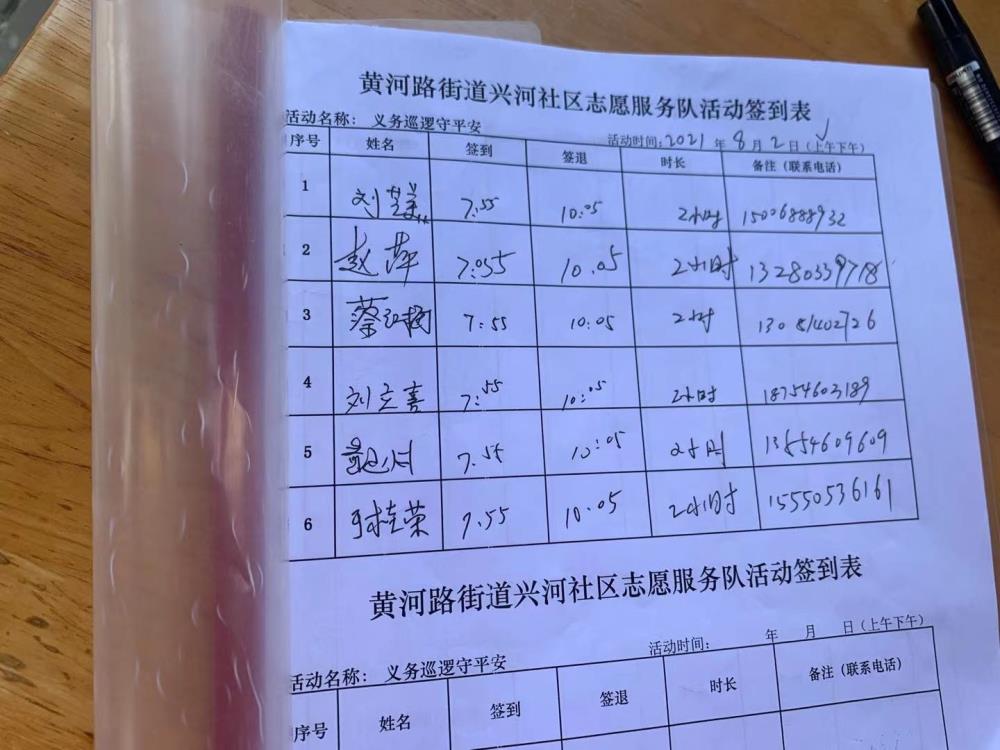 黄河路街道兴河社区志愿服务队活动签到表
活动名称： 义务巡逻守平安 活动时间：2021 年 8 月 2 日（上午下午）
序号 姓名 签到 签退 时长 备注（联系电话）
1 刘 7:55 10:05 2小时 15006888932
2 赵萍 7:055 10.05 2小时 13280339718
3 蔡 7:55 10:05 2小时 13081402726
4 刘立喜 7:55 10:05 2小时 18754603189
5 7.55 10:05 2小时 13854609609
6 桂荣 7.55 10.05 2小时 15550536161
黄河路街道兴河社区志愿服务队活动签到表
活动名称： 义务巡逻守平安 活动时间： 年 月 日（上午下午）
序号 姓名 签到 签退 时长 备注（联系电话）